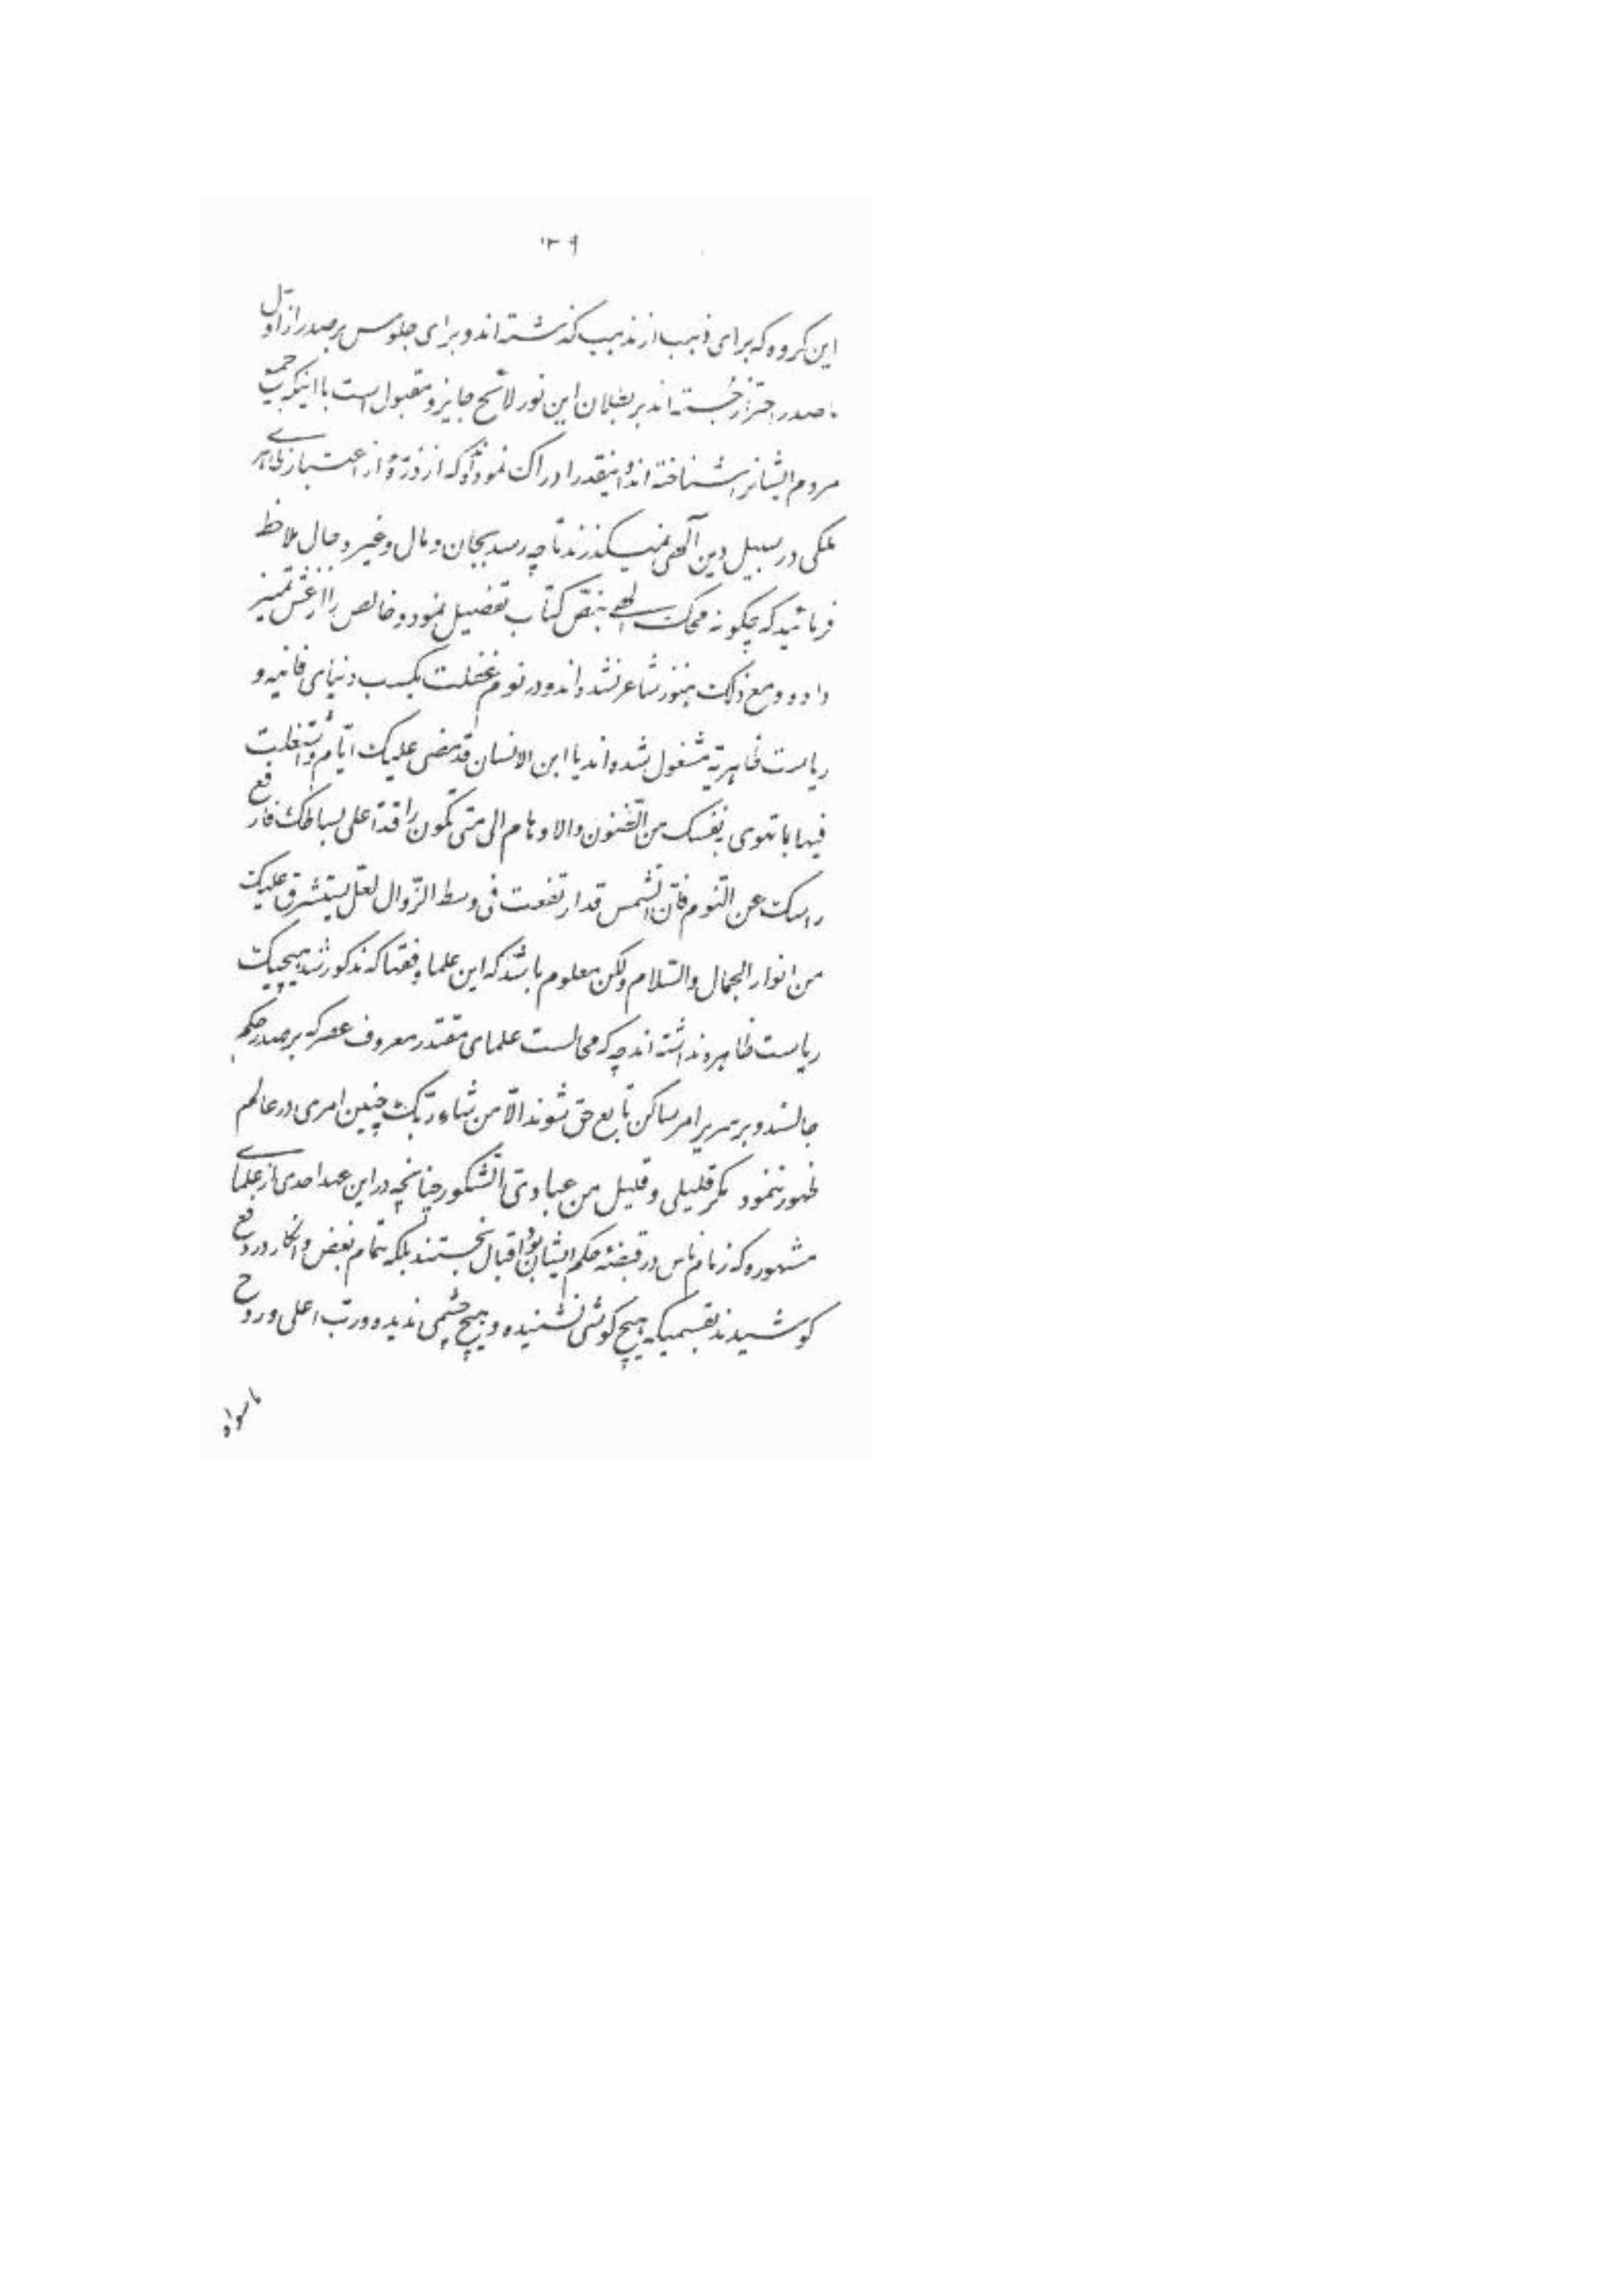 ۱۳۹
این کروه که برای ذهب از مذهب کذشته اند و برای جلوس بر صدر از اوّل
ما صدر احتراز جسته اند بر بطلان این نور لائح جایز و مقبول است با اینکه جمیع
مردم ایشانرا شناخته اند و اینقدر ادراک نموده‌اند که از ذرّهٔ از اعتبار ظاهری
ملکی در سبیل دین الهی نمیکذرند تا چه رسد بجان و مال و غیره و حال ملاحظه
فرمائید که چکونه محک الهی بنصّ کتاب تفصیل نمود و خالص را از غش تمیز
داد و مع ذلک هنوز شاعر نشده‌اند و در نوم غفلت بکسب دنیای فانیه و
ریاست ظاهریّه مشغول شده‌اند یا ابن الانسان قد مضی علیک ایّام و اشتغلت
فیها بما تهوی به نفسک من الظّنون و الاوهام الی متی تکون راقداً علی بساطک فارفع
راسک عن النّوم فانّ الشّمس قد ارتفعت فی وسط الزّوال لعلّ یستشرق علیک
من انوار الجمال و السّلام ولکن معلوم باشد که این علما و فقها که مذکور شد هیچیک
ریاست ظاهره نداشته اند چه که محالست علمای مقتدر معروف عصر که بر صدر حکم
جالسند و بر سریر امر ساکن تابع حق شوند الّا من شاء ربّک چنین امری در عالم
ظهور ننمود مکر قلیلی و قلیل من عبادی الشّکور چنانچه در این عهد احدی از علمای
مشهوره که زمام ناس در قبضهٔ حکم ایشان بود اقبال نجستند بلکه بتمام بغض و انکار در دفع
کوشیدند بقسمیکه هیچ کوشی نشنیده و هیچ چشمی ندیده و ربّ اعلی و روح
ماسواه